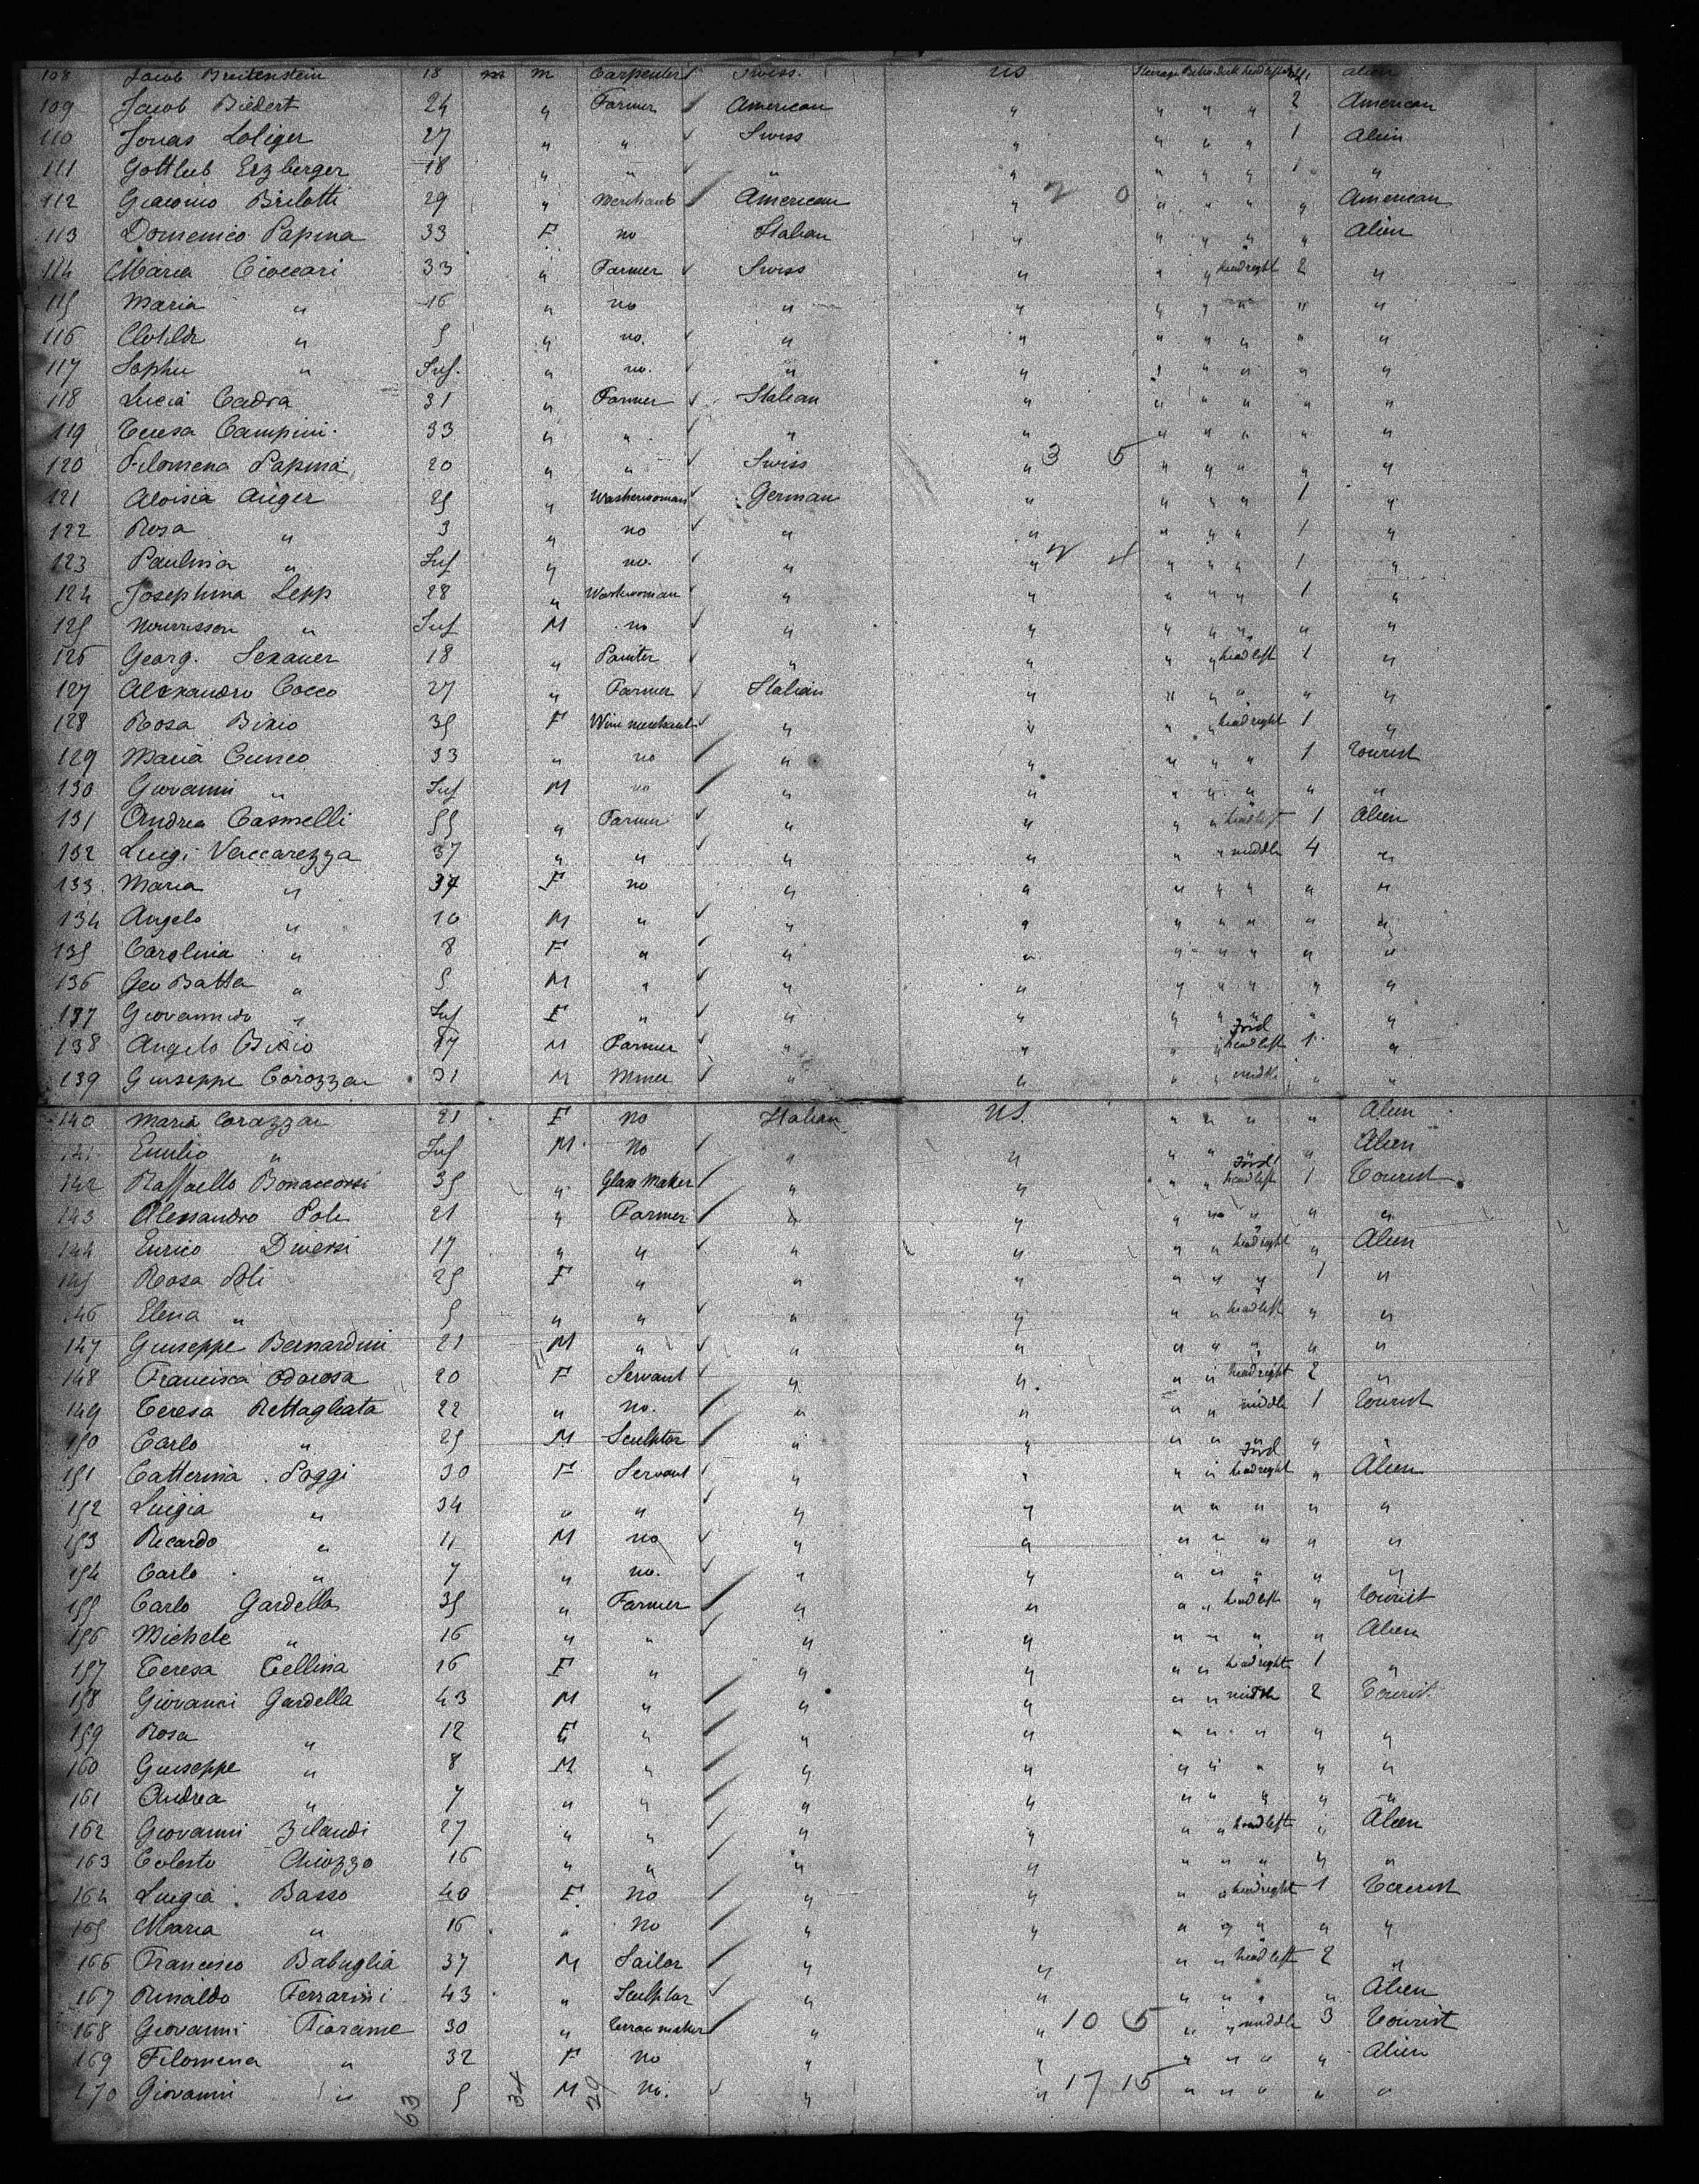 108 Jacob Breitenstein 18 m m Carpenter Swiss. US Steerage Between deck head left 1 alien
109 Jacob Biedert 24 " Farmer American " " " " 2 American
110 Jonas Loliger 27 " " Swiss " " " " 1 Alien
111 Gottlieb Erzberger 18 " " " " " " " 1 "
112 Giacomo Brilotti 29 " Merchant American " 2 0 " " " " American
113 Domenico Papina 33 F no Italian " " " " " Alien
114 Maria Cioccari 33 " Farmer Swiss " " " head right 2 "
115 Maria " 16 " no " " " " " " "
116 Clotilda " 5 " no. " " " " " " "
117 Sophie " Inf. " no. " " " " " " "
118 Lucia Cadra 31 " Farmer Italian " " " " " "
119 Teresa Campini. 33 " " " " " " " " "
120 Filomena Papina 20 " " Swiss " 3 5 " " " " "
121 Aloisia Auger 25 " Washerwoman German " " " " 1 "
122 Rosa " 3 " no " " " " " 1 "
123 Paulina " Inf " no. " " 2 4 " " " 1 "
124 Josephina Lepp 28 " Washwoman " " " " " 1 "
125 Nourrisson " Inf M no " " " " " " "
126 Georg. Sexauer 18 " Painter " " " " head left 1 "
127 Alexandro Cocco 27 " Farmer Italian " " " " " "
128 Rosa Bixio 35 F Wine merchant " " " " head right 1 "
129 Maria Cuneo 33 " no " " " " " 1 Tourist
130 Giovanni " Inf M no " " " " " " "
131 Andrea Casmelli 55 " Farmer " " " " head left 1 Alien
132 Luigi Vaccarezza 37 " " " " " " middle 4 "
133 Maria " 34 F no " " " " " " "
134 Angelo " 10 M " " " " " " " "
135 Carolina " 8 F " " " " " " " "
136 Geo Batta " 5 M " " " " " " " "
137 Giovannida " Inf F " " " " " " " "
138 Angelo Bixio 17 M Farmer " " " " head left 1 "
139 Giuseppe Corozza 31 M Miner " " " " middle " "
140 Maria Corazza 21 F No Italian US. " " " " Alien
141 Emilio " Inf M No " " " " " " Alien
142 Raffaello Bonaccorsi 35 " Glass Maker " " " " head left 1 Tourist
143 Alessandro Poli 21 " Farmer " " " " " " "
144 Enrico Diversi 17 " " " " " " head right " Alien
145 Rosa Poli 25 F " " " " " " 1 "
146 Elena " 5 " " " " " " head left " "
147 Giuseppe Bernardini 21 M " " " " " " " "
148 Francisca Odarosa 20 F Servant " " " " head right 2 "
149 Teresa Rettagliata 22 " no. " " " " middle 1 Tourist
150 Carlo " 25 M Sculptor " " " " " " "
151 Catterina Poggi 30 F Servant " " " " head right " Alien
152 Luigia " 34 " " " " " " " " "
153 Ricardo " 11 M no " " " " " " "
154 Carlo " 7 " no. " " " " " " "
155 Carlo Gardella 35 " Farmer " " " " head left " Tourist
156 Michele " 16 " " " " " " " " Alien
157 Teresa Tellina 26 F " " " " " head right 1 "
158 Giovanni Gardella 43 M " " " " " middle 2 Tourist.
159 Rosa " 12 F " " " " " " " "
160 Giuseppe " 8 M " " " " " " " "
161 Andrea " 7 " " " " " " " " "
162 Giovanni Zilandi 27 " " " " " " head left " Alien
163 Celeste Chiozzo 16 " " " " " " " " "
164 Luigia Basso 40 F No " " " " head right 1 Tourist
165 Maria " 16 " No " " " " " " "
166 Francesco Babuglia 37 M Sailor " " " " head left 2 "
167 Rinaldo Ferrarini 43 " Sculptor " " " " " " Alien
168 Giovanni Fiorame 30 " Terran maker " " 10 5 " " middle 3 Tourist
169 Filomena " 32 F No " " " " " " Alien
170 Giovanni " 5 M No. " " 17 15 " " " " "
63 34 29